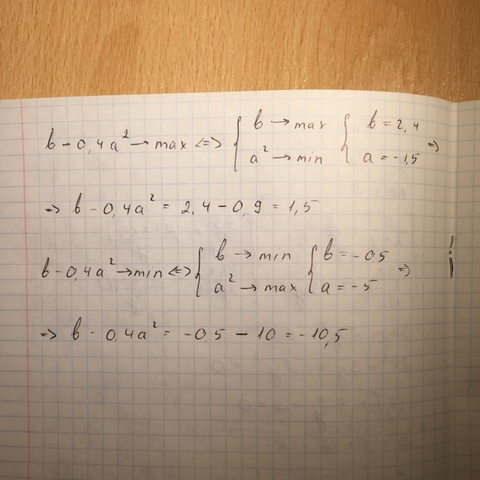 b - 0,4a² → max <=> { b → max { b = 2,4
a² → min a = -1,5 =>
=> b - 0,4a² = 2,4 - 0,9 = 1,5
b - 0,4a² → min <=> { b → min { b = -0,5
a² → max a = -5 =>
=> b - 0,4a² = -0,5 - 10 = -10,5